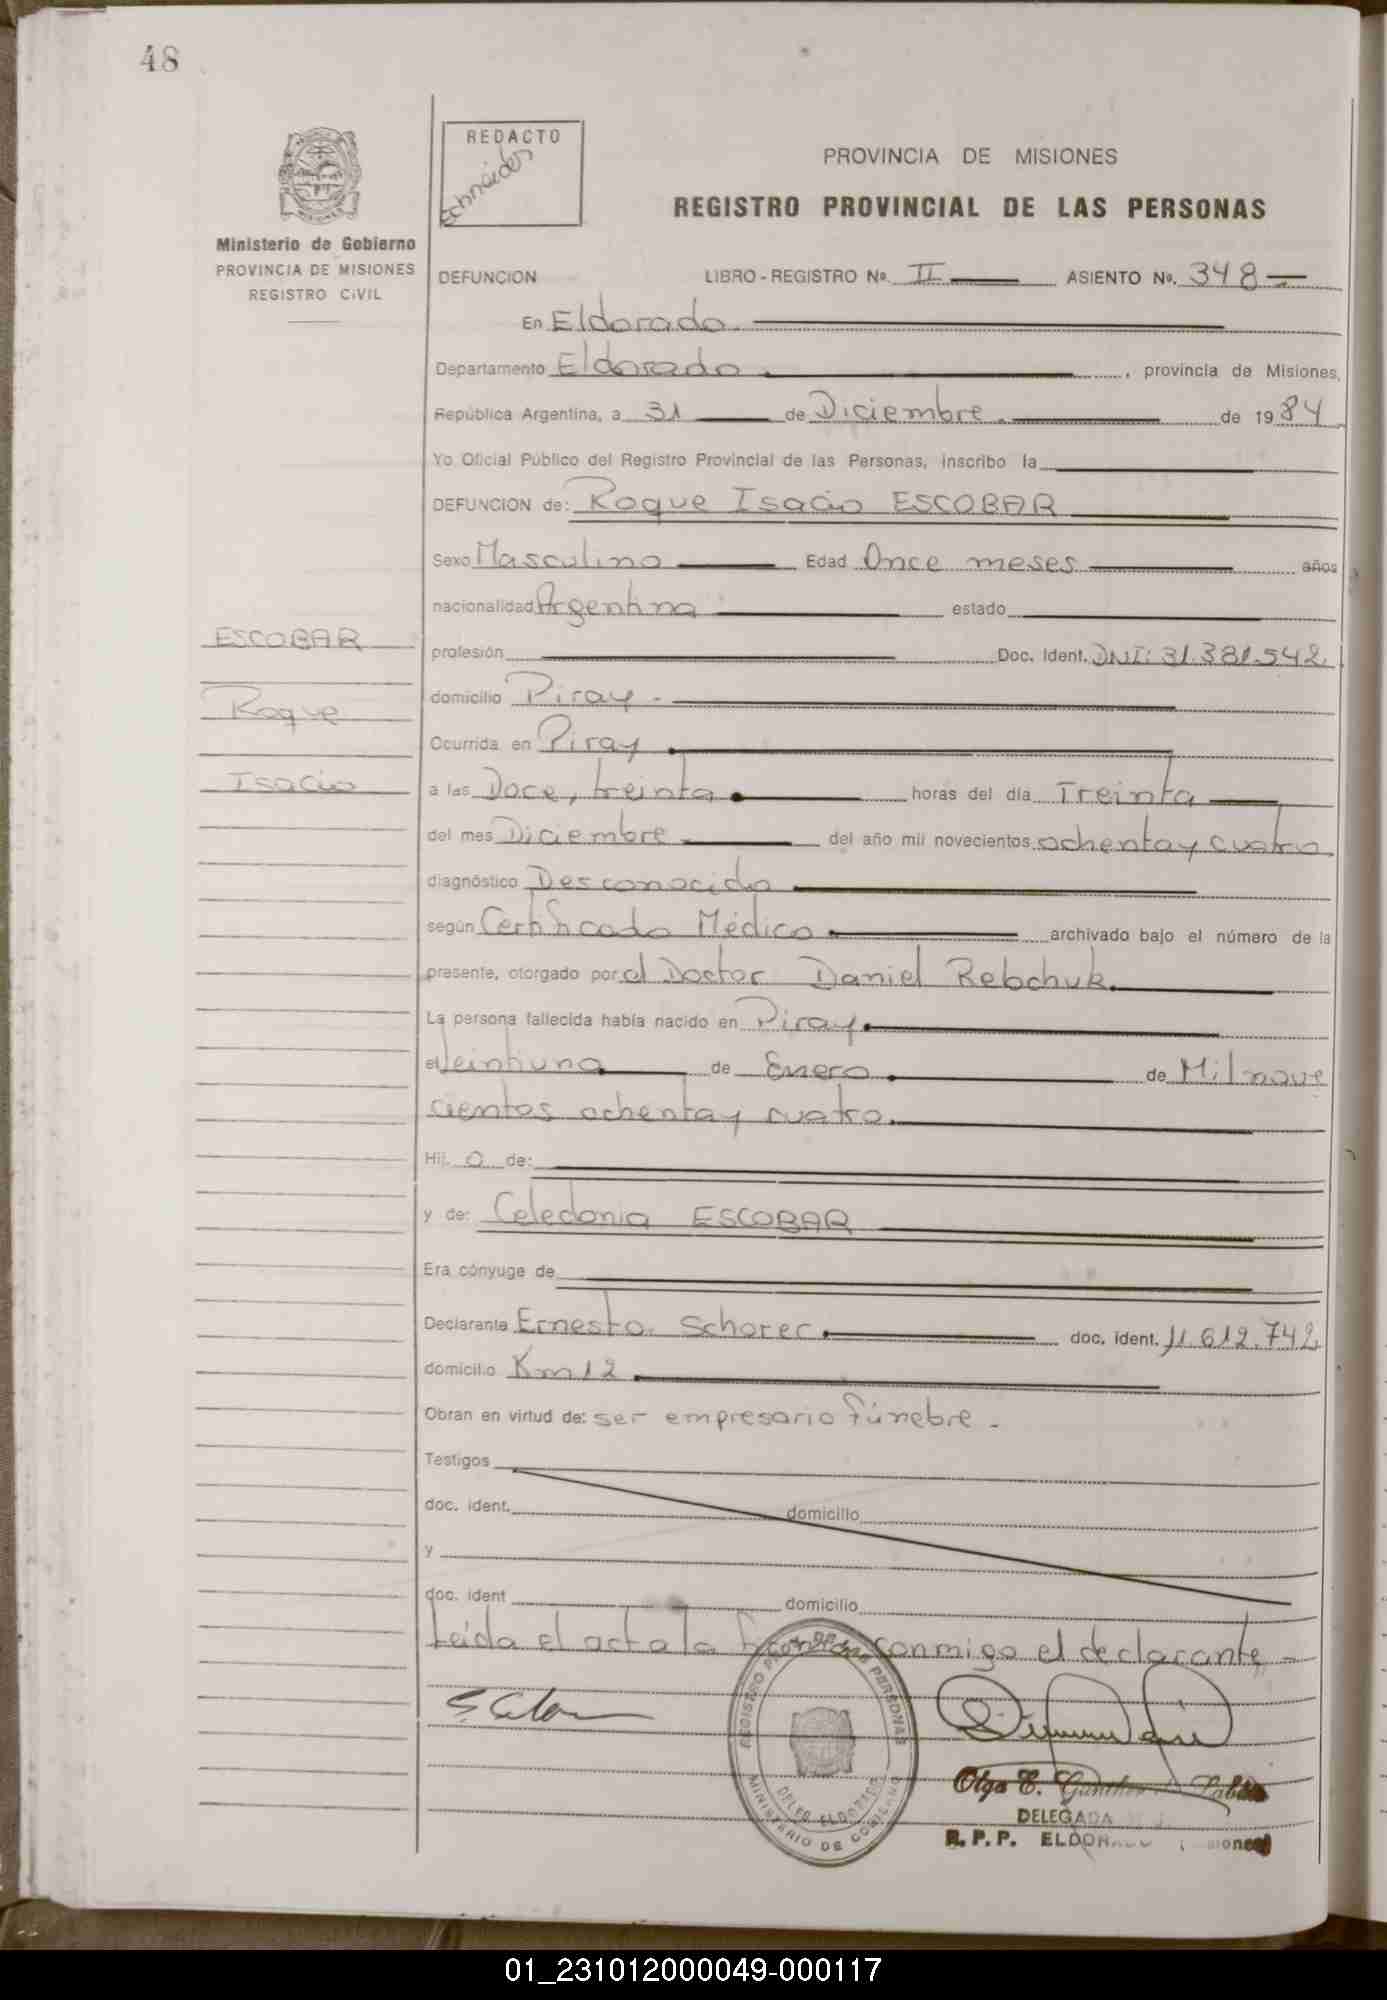 48
REDACTO
Schneider
PROVINCIA DE MISIONES
REGISTRO PROVINCIAL DE LAS PERSONAS
Ministerio de Gobierno
PROVINCIA DE MISIONES
REGISTRO CIVIL
DEFUNCION LIBRO - REGISTRO No. II ASIENTO No. 348
En Eldorado.
Departamento Eldorado. , provincia de Misiones,
República Argentina, a 31 de Diciembre. de 1984
Yo Oficial Público del Registro Provincial de las Personas, inscribo la
DEFUNCION de: Roque Isacio ESCOBAR
Sexo Masculino Edad Once meses años
nacionalidad Argentina estado
ESCOBAR
profesión Doc. Ident. DNI: 31.381.542.
domicilio Piray -
Roque
Ocurrida en Piray.
Isacio
a las Doce, treinta. horas del día Treinta
del mes Diciembre del año mil novecientos ochenta y cuatro.
diagnóstico Desconocido
según Certificado Médico archivado bajo el número de la
presente, otorgado por el Doctor Daniel Rebchuk.
La persona fallecida había nacido en Piray.
el Veintiuno. de Enero. de Mil nove
cientos ochenta y cuatro.
Hij o de:
y de: Celedonia ESCOBAR
Era cónyuge de
Declarante Ernesto. Schorer. doc. ident. 11.612.742
domicilio Km 12.
Obran en virtud de: ser empresario fúnebre -
Testigos
doc. ident. domicilio
y
doc. ident domicilio
Leida el acta la conmigo el declarante -
REGISTRO PROV. DE LAS PERSONAS
DELEG. ELDORADO
MINISTERIO DE GOBIERNO
Olga E. Günther
DELEGADA
R. P. P. ELDORADO
01_231012000049-000117